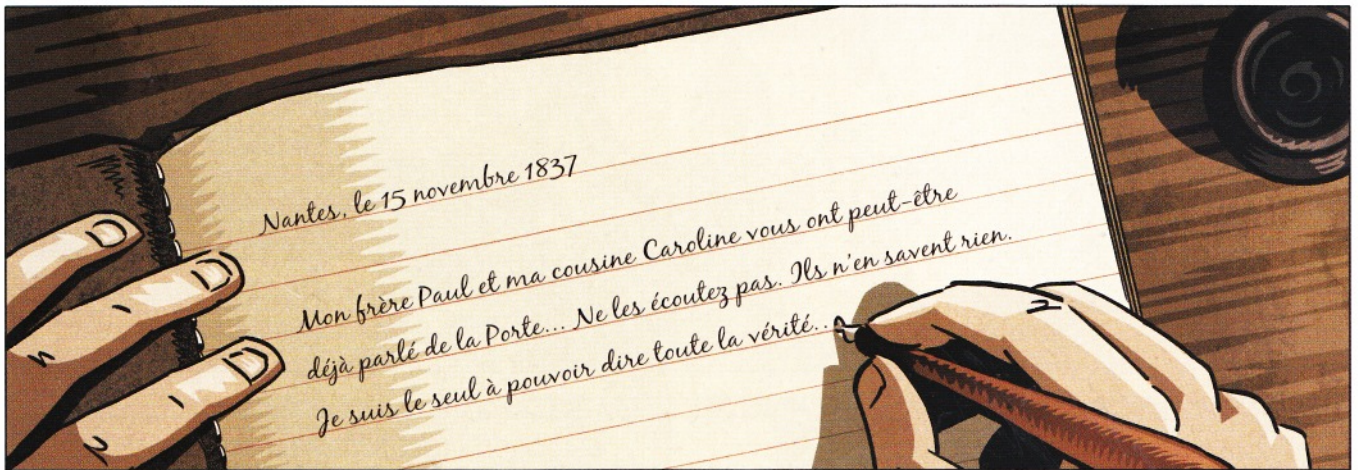 Nantes, le 15 novembre 1837
Mon frère Paul et ma cousine Caroline vous ont peut-être
déjà parlé de la Porte... Ne les écoutez pas. Ils n'en savent rien.
Je suis le seul à pouvoir dire toute la vérité...